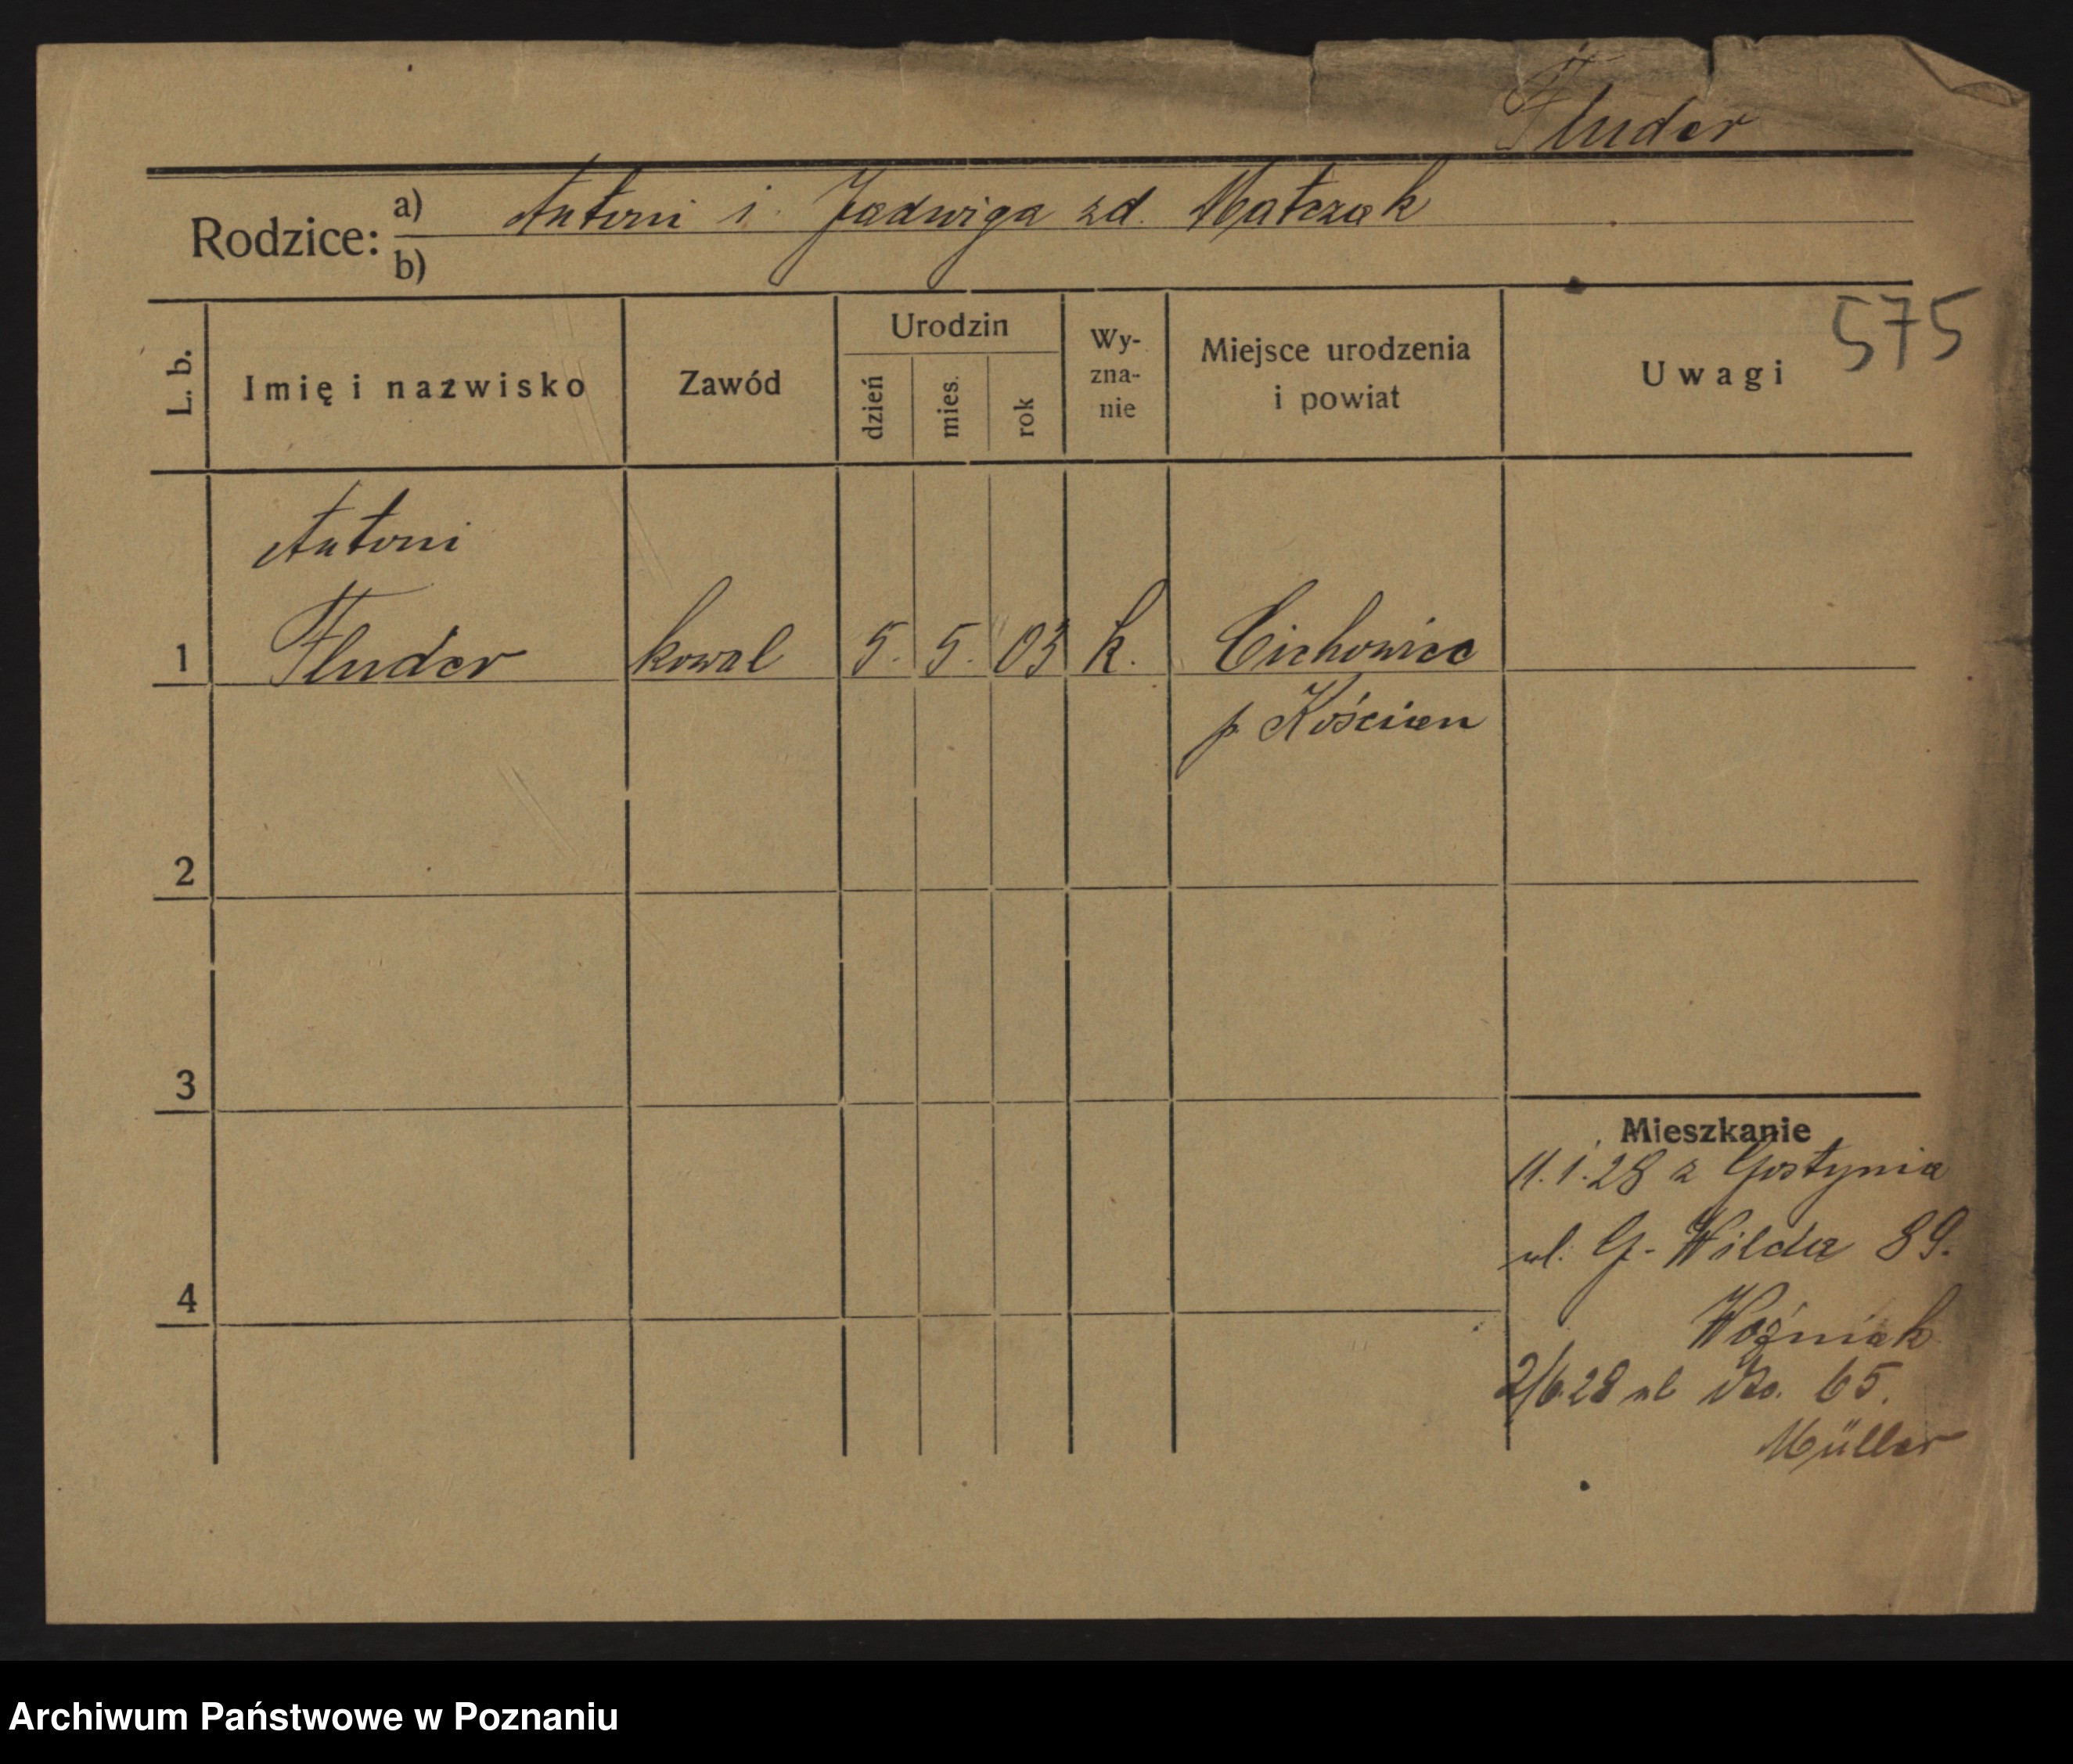 Fluder
Rodzice: a) Antoni i Jadwiga zd. Matczak
b)
575
L. b. Imię i nazwisko Zawód Urodzin dzień mies. rok Wy-zna-nie Miejsce urodzenia i powiat Uwagi
Antoni
1 Fluder kowal 5. 5. 03 k. Cichowice
p. Kościan
2
3
Mieszkanie
11.1.28 z Gostynia
ul. G. Wilda 89.
4
Woźniak
2/6 28 ul 65.
Müller
Archiwum Państwowe w Poznaniu